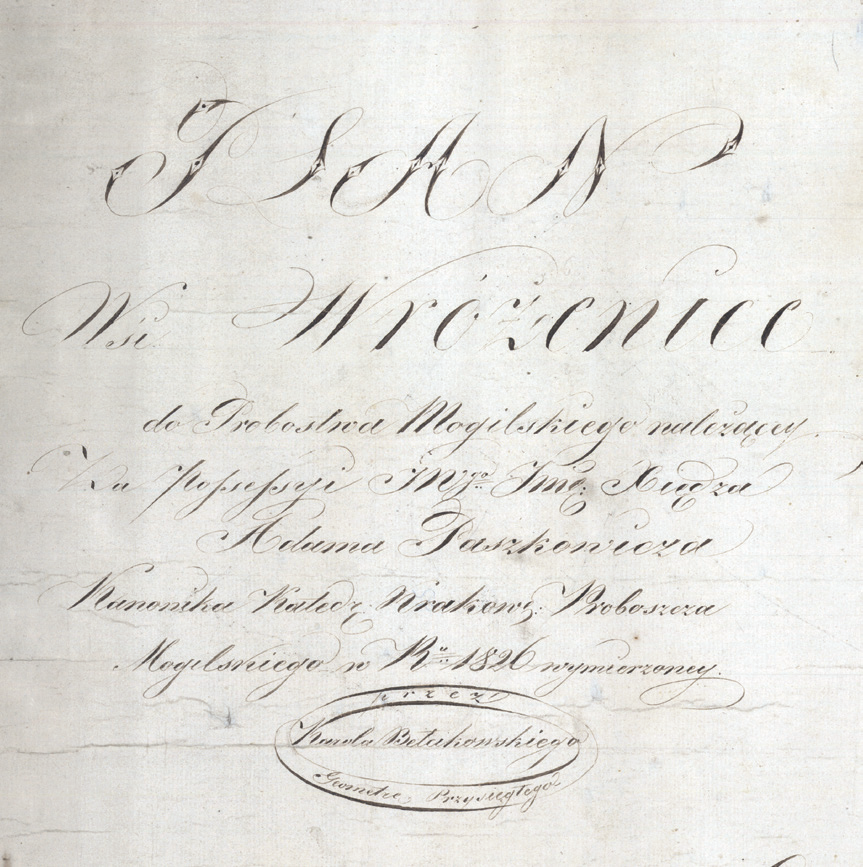 PLAN
Wsi Wróżenice
do Probostwa Mogilskiego należącey.
Za Possessyi JWgo Jmć: Xiędza
Adama Paszkowicza
Kanonika Katedr: Krakows: Proboszcza
Mogilskiego w Ru 1826 wymierzoney.
przez
Karola Betakowskiego
Geometrę Przysięgłego